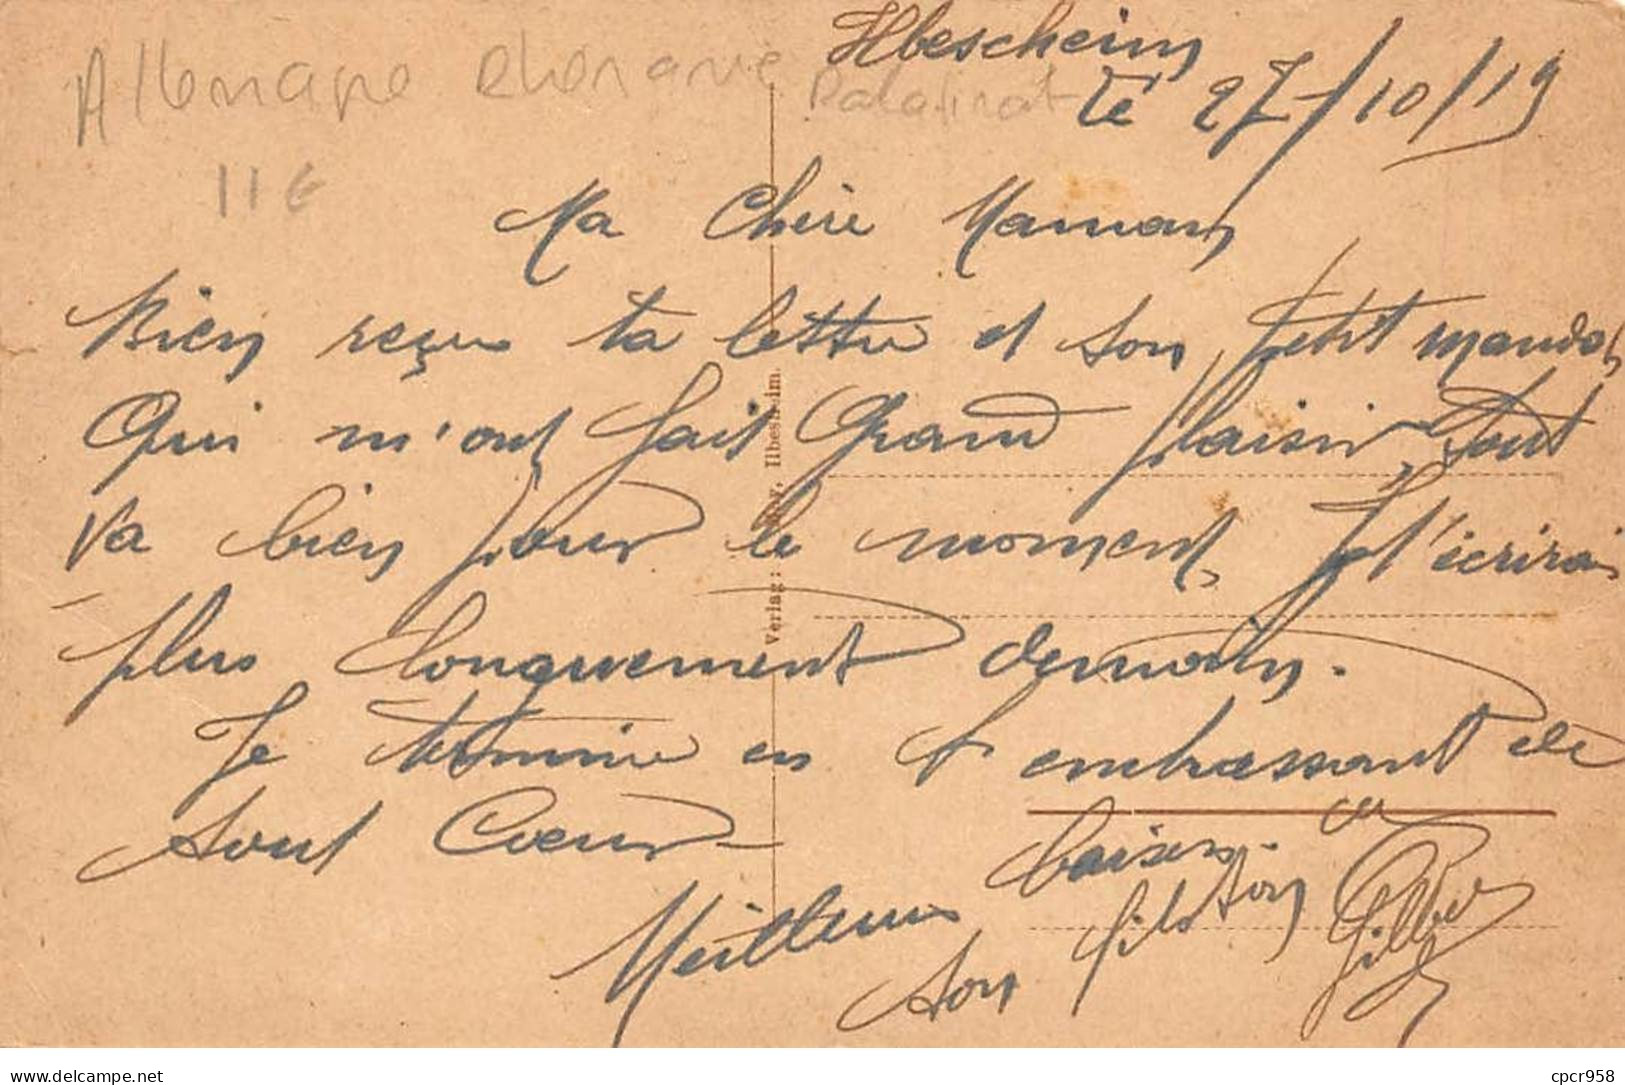 Ilbescheim
Allemagne Rhénanie Palatinat
le 27/10/19
11€
Ma Chère Maman
Bien reçus ta lettre et ton petit mandat
Qui m'ont fait Grand plaisir, tout
va bien pour le moment, Je t'écrirai
plus longuement demain.
Je termine en t'embrassant de
tout Cœur
Meilleurs baisers.
ton fils ton Gilbert
Verlag: Ilbesheim.
cpcr958